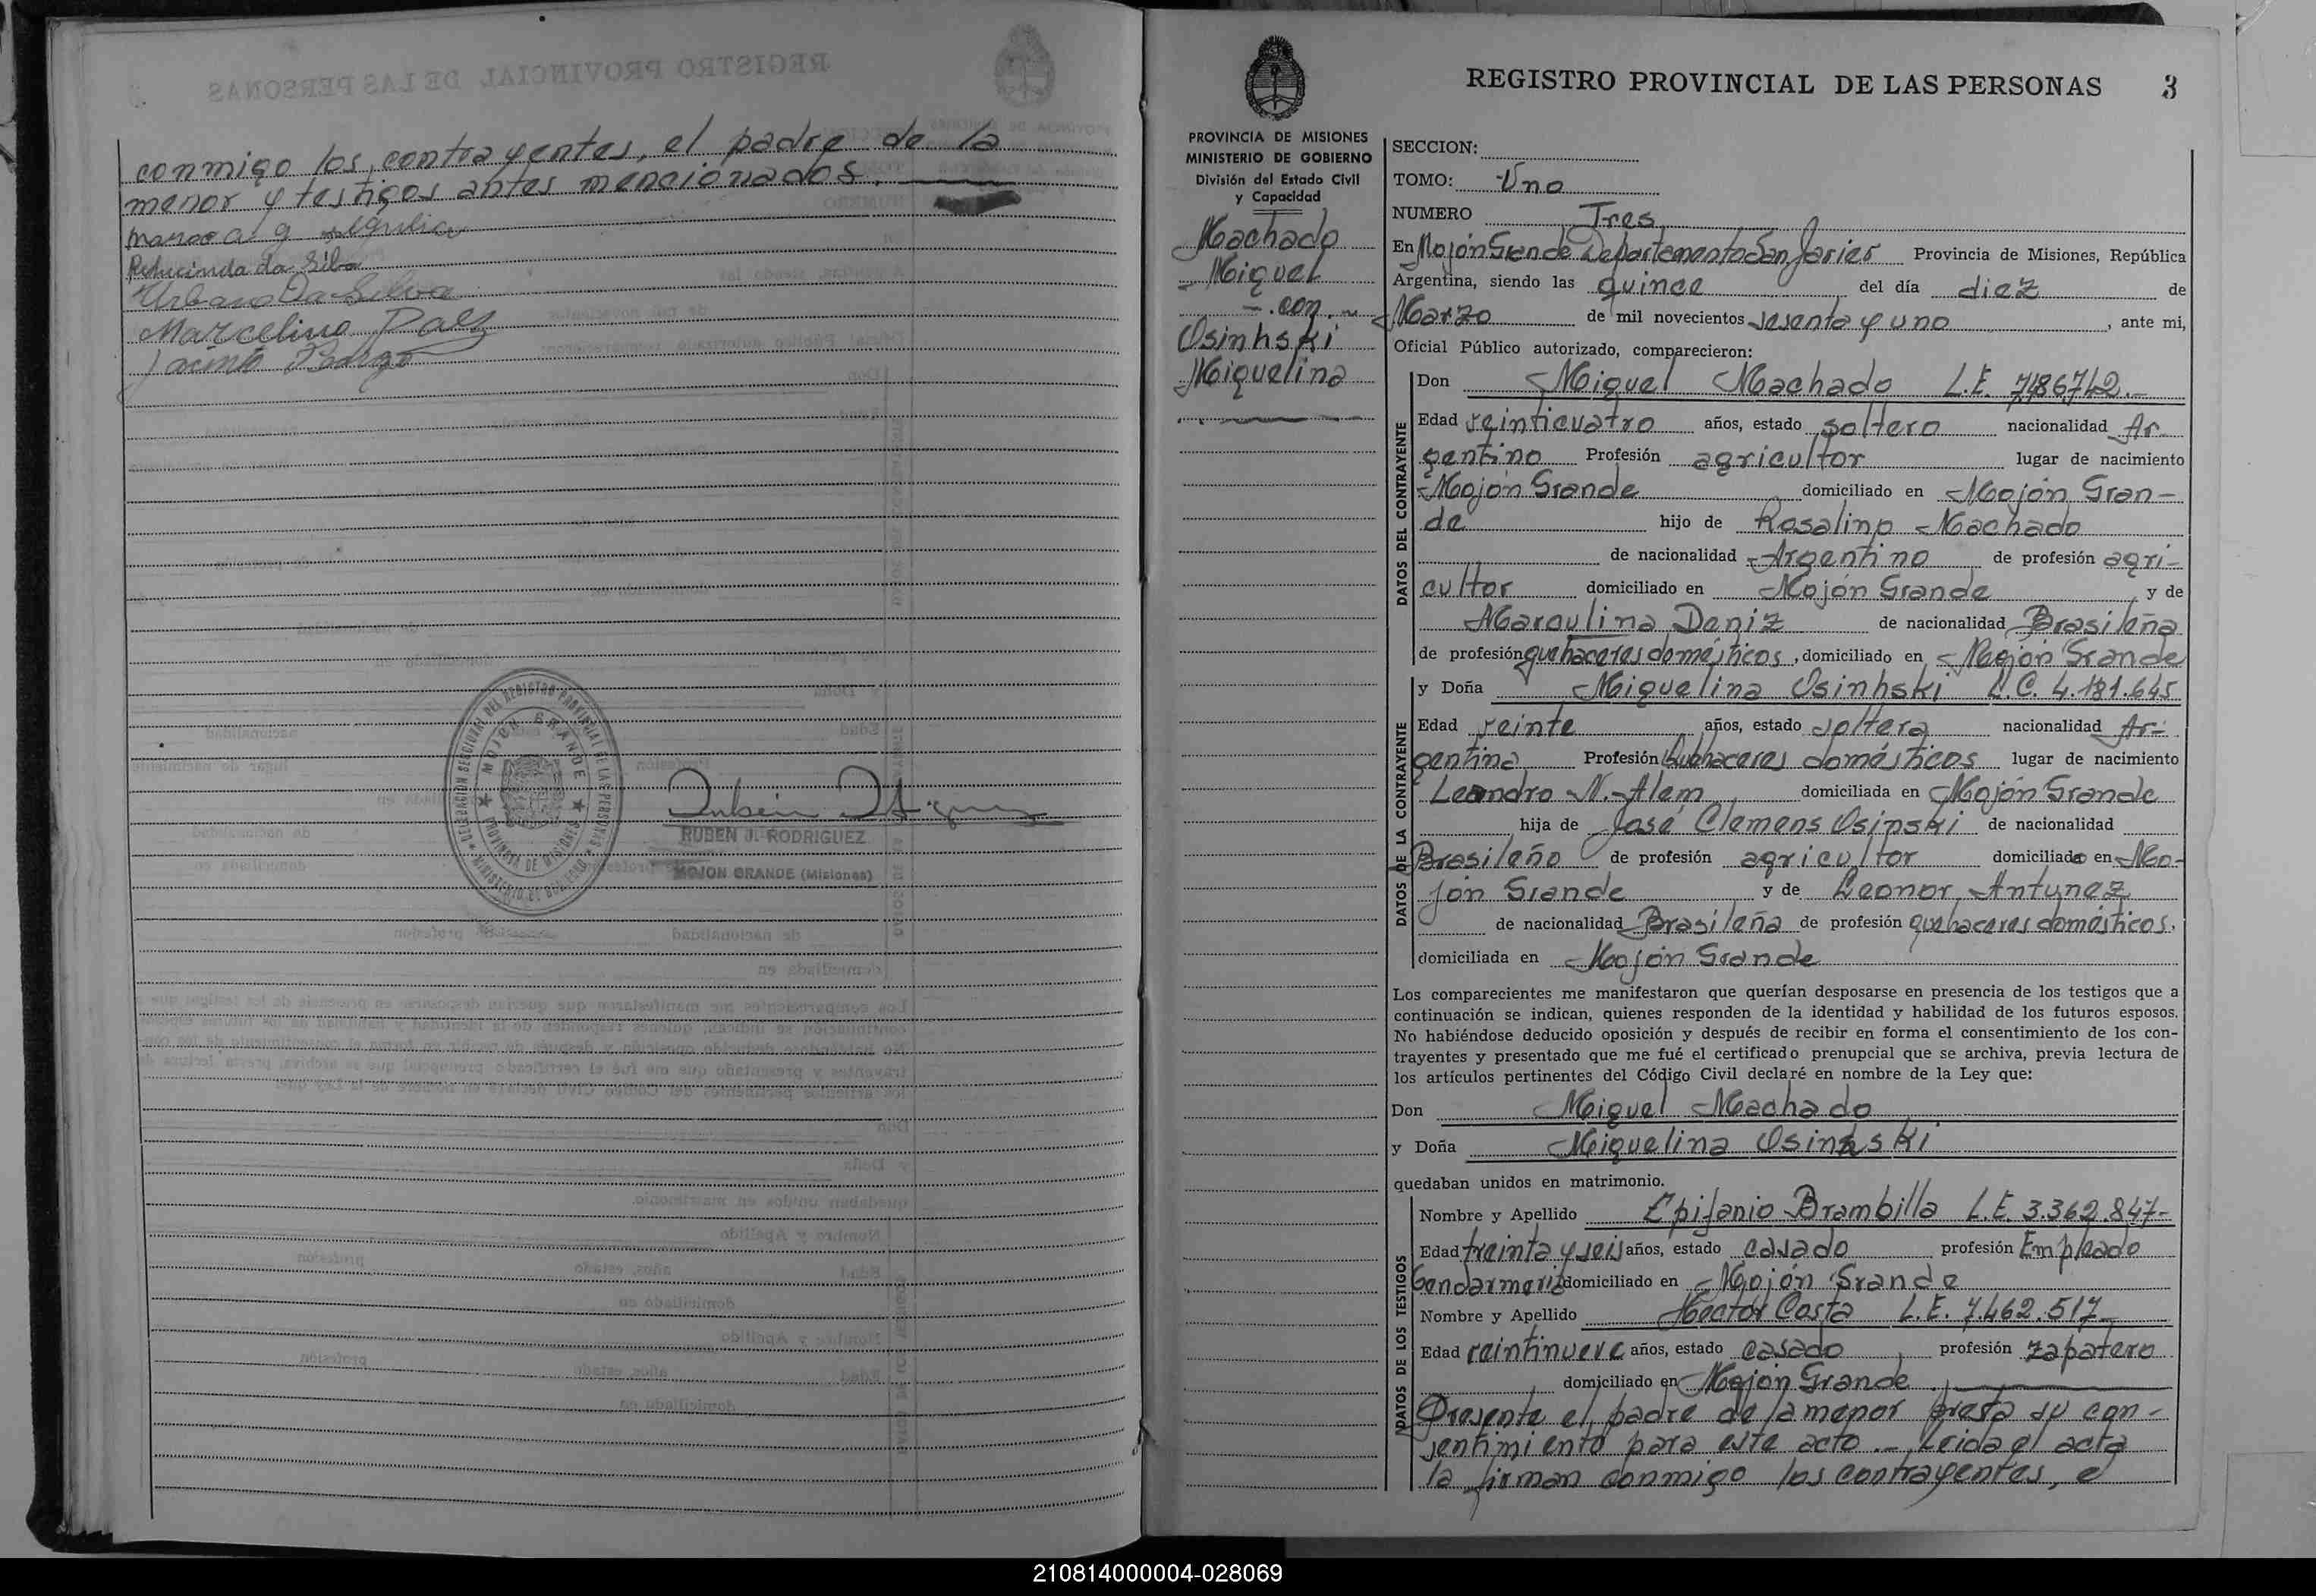 conmigo los contrayentes, el padre de la
menor y testigos antes mencionados.
da Silva
Urbano Da Silva
Marcelino Paez
Jacinto
DELEGACION SECCIONAL DEL REGISTRO PROVINCIAL DE LAS PERSONAS
MOJON GRANDE
PROVINCIA DE MISIONES
MINISTERIO DE GOBIERNO
RUBEN J. RODRIGUEZ
MOJON GRANDE (Misiones)
REGISTRO PROVINCIAL DE LAS PERSONAS 3
PROVINCIA DE MISIONES
MINISTERIO DE GOBIERNO
División del Estado Civil
y Capacidad
Machado
Miguel
-.con.-
Osinhski
Miguelina
SECCION:
TOMO: Uno
NUMERO Tres
En Mojón Grande Departamento San Javier Provincia de Misiones, República
Argentina, siendo las quince del día diez de
Marzo de mil novecientos sesenta y uno, ante mi,
Oficial Público autorizado, comparecieron:
DATOS DEL CONTRAYENTE
Don Miguel Machado L.E.
Edad veinticuatro años, estado soltero nacionalidad Ar-
gentino Profesión agricultor lugar de nacimiento
Mojón Grande domiciliado en Mojón Gran-
de hijo de Rosalino Machado
de nacionalidad Argentino de profesión agri-
cultor domiciliado en Mojón Grande y de
Deniz de nacionalidad Brasileña
de profesión quehaceres domésticos, domiciliado en Mojón Grande
y Doña Miguelina Osinhski L.C. 4.181.645
DATOS DE LA CONTRAYENTE
Edad veinte años, estado soltera nacionalidad Ar-
gentina Profesión Quehaceres domésticos lugar de nacimiento
Leandro N. Alem domiciliada en Mojón Grande
hija de José Clemens Osinski de nacionalidad
Brasileño de profesión agricultor domiciliado en Mo-
jón Grande y de Leonor Antunez
de nacionalidad Brasileña de profesión quehaceres domésticos,
domiciliada en Mojón Grande
Los comparecientes me manifestaron que querían desposarse en presencia de los testigos que a
continuación se indican, quienes responden de la identidad y habilidad de los futuros esposos.
No habiéndose deducido oposición y después de recibir en forma el consentimiento de los con-
trayentes y presentado que me fué el certificado prenupcial que se archiva, previa lectura de
los artículos pertinentes del Código Civil declaré en nombre de la Ley que:
Don Miguel Machado
y Doña Miguelina Osinhski
quedaban unidos en matrimonio.
DATOS DE LOS TESTIGOS
Nombre y Apellido Epifanio Brambilla L.E. 3.362.847-
Edad treinta y seis años, estado casado profesión Empleado
Gendarmería domiciliado en Mojón Grande
Nombre y Apellido Hector Costa L.E. 7.462.517-
Edad veintinueve años, estado casado profesión zapatero
domiciliado en Mojón Grande.
Presente el padre de la menor presta su con-
sentimiento para este acto.- Leida el acta
la firman conmigo los contrayentes, e
210814000004-028069